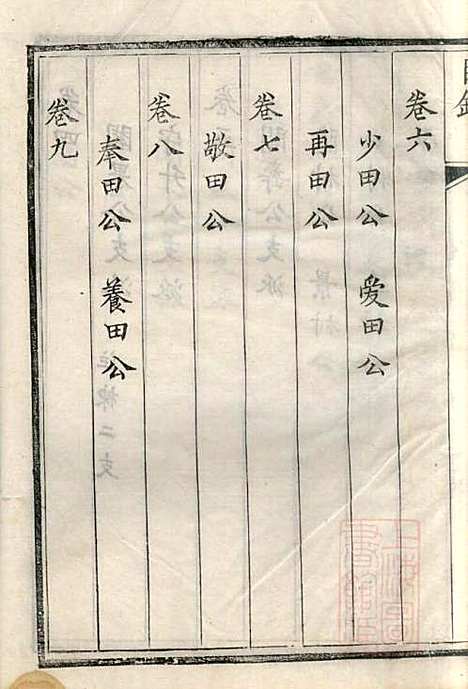 目錄
卷六
少田公 爱田公
再田公
卷七
敬田公
卷八
奉田公 養田公
卷九